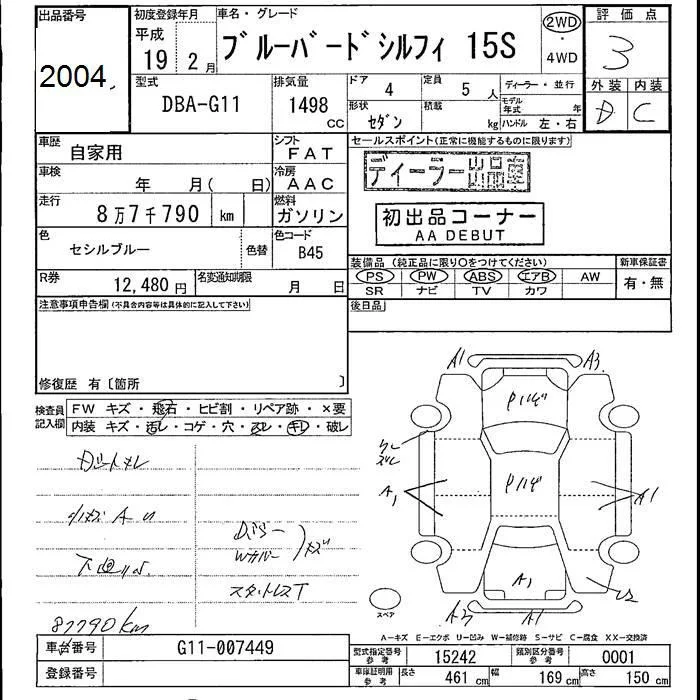 出品番号
2004
初度登録年月
平成
19 2月
車名・グレード
ブルーバードシルフィ 15S
2WD
・
4WD
評価点
3
型式
DBA-G11
排気量
1498
CC
ドア
4
定員
5人
ディーラー・並行
形状
セダン
積載
kg
モデル年式 年
ハンドル 左・右
外装 内装
D C
車歴
自家用
シフト
FAT
車検
年 月( 日)
冷房
AAC
走行
8万7千790 km
燃料
ガソリン
色
セシルブルー
色替
色コード
B45
R券
12,480 円
名変通知期限
月 日
セールスポイント(正常に機能するものに限ります)
ディーラー出品車
初出品コーナー
AA DEBUT
装備品 (純正品に限り○をつけてください)
PS PW ABS エアB AW
SR ナビ TV カワ
新車保証書
有・無
注意事項申告欄(不具合内容等は具体的に記入して下さい)
後日品
修復歴 有〔箇所 〕
検査員記入欄
FW キズ・飛石・ヒビ割・リペア跡・×要
内装 キズ・汚レ・コゲ・穴・スレ・キレ・破レ
A1 A3
A1
A1
A1
A3 A1
U2
スペア
87790km
A−キズ E−エクボ U−凹み W−補修跡 S−サビ C−腐食 XX−交換済
車台番号
G11-007449
登録番号
型式指定番号
参考
15242
類別区分番号
参考
0001
車庫証明用
参考
長さ 461 cm 幅 169 cm 高さ 150 cm